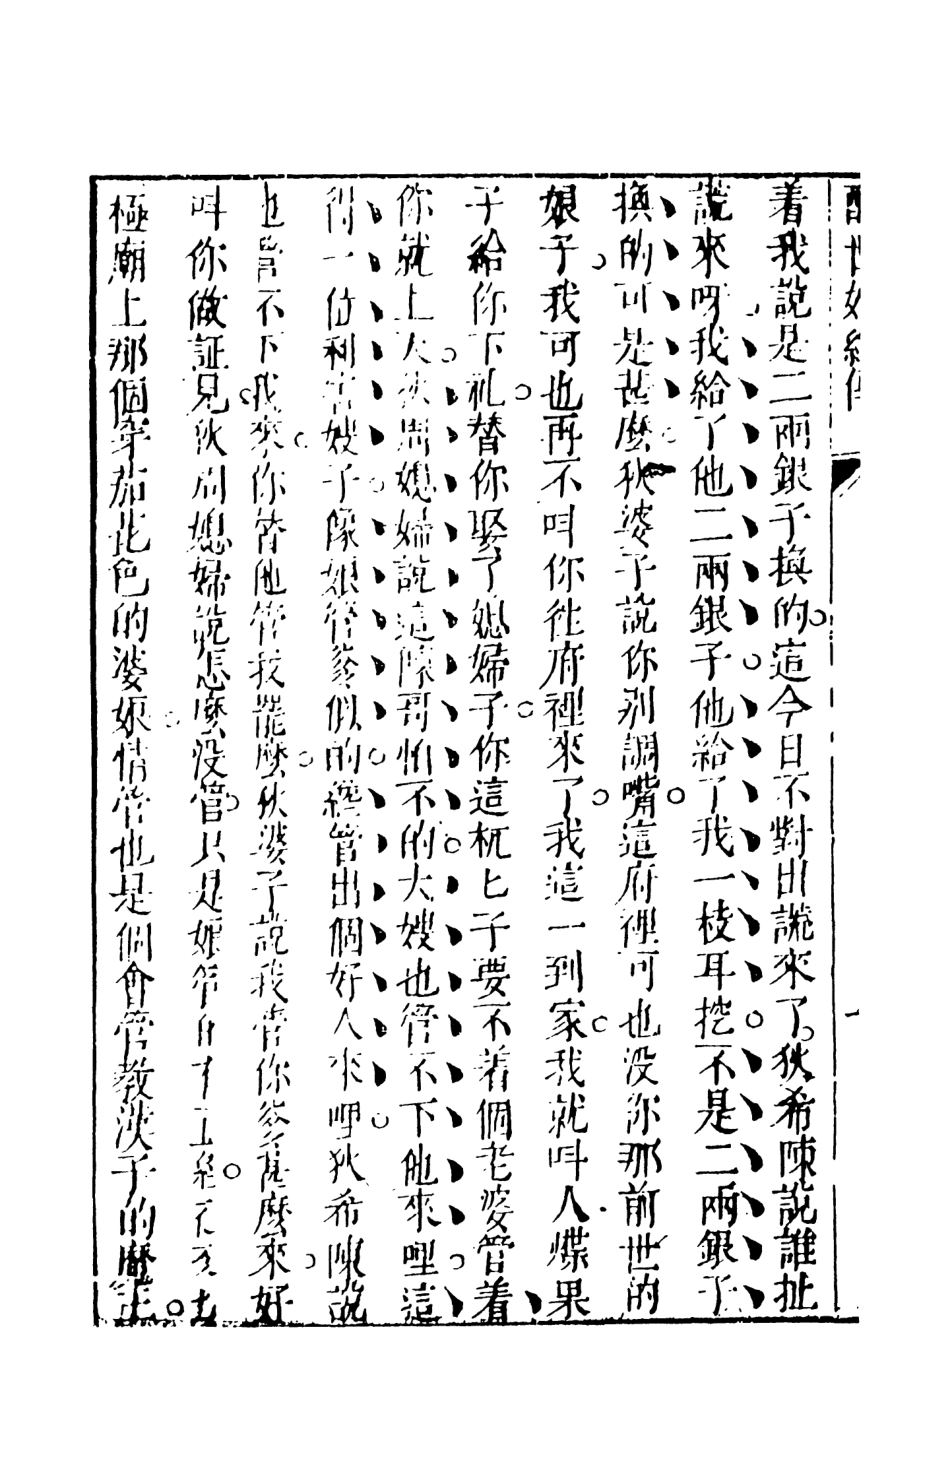 醒世姻緣傳
着我說是二兩銀子換的這今日不對出謊來了狄希陳說誰扯
謊來呀我給了他二兩銀子他給了我一枝耳挖不是二兩銀子
換的可是甚麼狄婆子說你別調嘴這府裡可也没你那前世的
娘子我可也再不叫你往府裡來了我這一到家我就叫人煠果
子給你下礼替你娶了媳婦子你這杭匕子要不着個老婆管着
你就上天狄周媳婦說這陳哥怕不的大嫂也管不下他來哩這
得一位利害嫂子像娘管爹似的纔管出個好人來呷狄希陳說
也管不下我來你替他管我罷麼狄婆子說我管你爹甚麼來好
叫你做証見狄周媳婦說怎麼没管只是娘管
極廟上那個穿茄花色的婆娘情管也是個會管教漢子的魔王